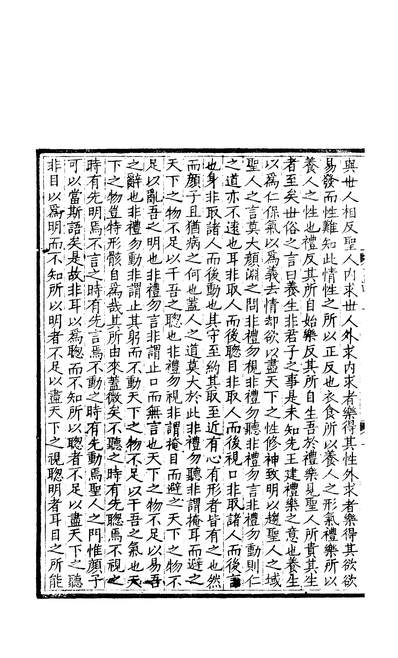 與世人相反聖人內求世人外求內求者樂得其性外求者樂得其欲欲
易發而性難知此情性之所以正反也衣食所以養人之形氣禮樂所以
養人之性也禮反其所自始樂反其所自生吾於禮樂見聖人所貴其生
者至矣世俗之言曰養生非君子之事是未知先王建禮樂之意也養生
以爲仁保氣以爲義去情却欲以盡天下之性修神致明以趨聖人之域
聖人之言莫大顏淵之問非禮勿視非禮勿聽非禮勿言非禮勿動則仁
之道亦不遠也耳非取人而後聰目非取人而後視口非取諸人而後言
也身非取諸人而後動也其守至約其取至近有心有形者皆有之也然
而顏子且猶病之何也蓋人之道莫大於此非禮勿聽非謂掩耳而避之
天下之物不足以干吾之聰也非禮勿視非謂掩目而避之天下之物不
足以亂吾之明也非禮勿言非謂止口而無言也天下之物不足以易吾
之辭也非禮勿動非謂止其躬而不動天下之物不足以干吾之氣也天
下之物豈特形骸自爲哉其所由來蓋微矣不聽之時有先聰焉不視之
時有先明焉不言之時有先言焉不動之時有先動焉聖人之門惟顏子
可以當斯語矣是故非耳以爲聰而不知所以聰者不足以盡天下之聽
非目以爲明而不知所以明者不足以盡天下之視聰明者耳目之所能